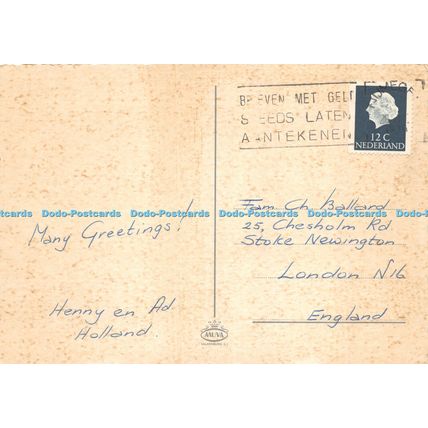 BRIEVEN MET GELD
STEEDS LATEN
AANTEKENEN
12 C
NEDERLAND
Fam Ch Ballard
25, Chesholm Rd
Stoke Newington
London N16
England
Many Greetings!
Henny en Ad
Holland.
MUVA
VALKENBURG
Dodo-Postcards Dodo-Postcards Dodo-Postcards Dodo-Postcards Dodo-Postcards